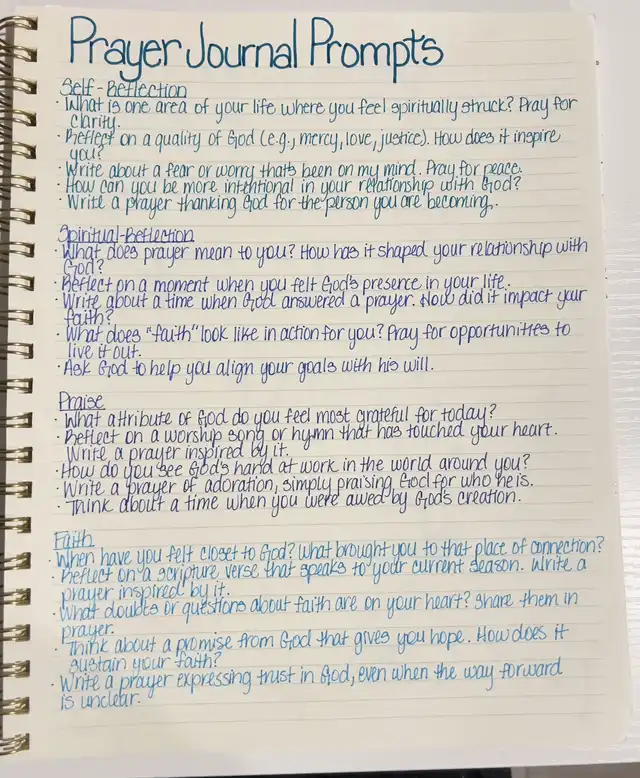 Prayer Journal Prompts
Self-Reflection
· What is one area of your life where you feel spiritually struck? Pray for
clarity.
· Reflect on a quality of God (e.g., mercy, love, justice). How does it inspire
you?
· Write about a fear or worry thats been on my mind. Pray for peace.
· How can you be more intentional in your relationship with God?
· Write a prayer thanking God for the person you are becoming.
Spiritual-Reflection
· What does prayer mean to you? How has it shaped your relationship with
God?
· Reflect on a moment when you felt God's presence in your life.
· Write about a time when God answered a prayer. How did it impact your
faith?
· What does "faith" look like in action for you? Pray for opportunities to
live it out.
· Ask God to help you align your goals with his will.
Praise
· What attribute of God do you feel most grateful for today?
· Reflect on a worship song or hymn that has touched your heart.
Write a prayer inspired by it.
· How do you see God's hand at work in the world around you?
· Write a prayer of adoration, simply praising God for who he is.
· Think about a time when you were awed by God's creation.
Faith
· When have you felt closet to God? What brought you to that place of connection?
· Reflect on a scripture verse that speaks to your current season. Write a
prayer inspired by it.
· What doubts or questions about faith are on your heart? Share them in
prayer.
· Think about a promise from God that gives you hope. How does it
sustain your faith?
· Write a prayer expressing trust in God, even when the way forward
is unclear.